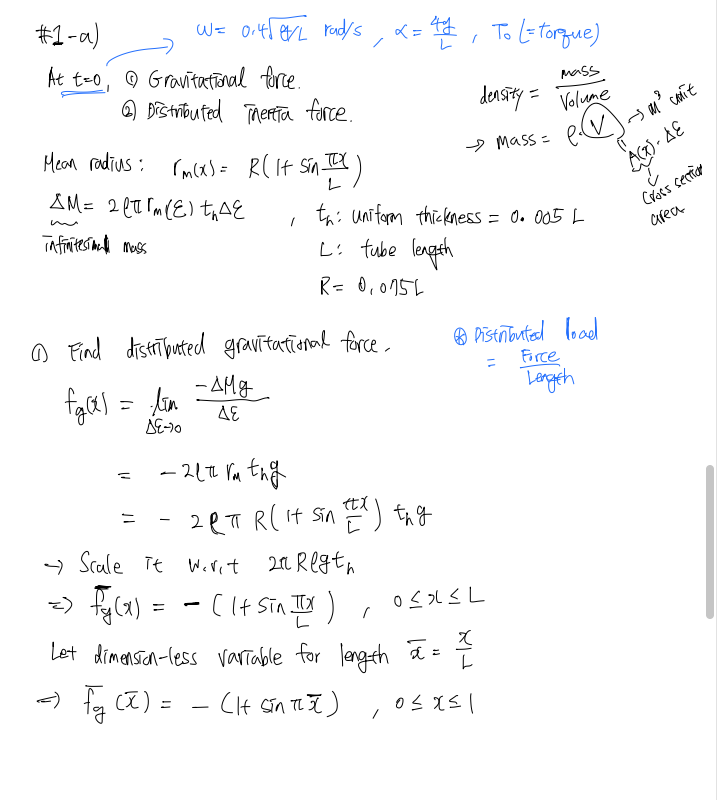 #1-a)
ω = 0.4√(g/L) rad/s , α = 4g/L , T₀ (=torque)
At t=0, ① Gravitational force.
② Distributed inertia force.
density = mass/Volume
→ mass = ρ·V → m³ unit
A(x)·Δε
↓
Cross section area
Mean radius : rₘ(x) = R(1+ sin πx/L)
ΔM = 2ρπ rₘ(ε) tₕ Δε , tₕ : uniform thickness = 0.005 L
infinitesimal mass
L : tube length
R = 0.075L
① Find distributed gravitational force.
⊛ Distributed load
= Force/Length
f_g(x) = lim_{Δε→0} -ΔMg/Δε
= -2ρπ rₘ tₕg
= - 2ρπ R(1+ sin πx/L) tₕg
→ Scale it w.r.t 2πRρgtₕ
⇒ f̄_g(x) = - (1+ sin πx/L) , 0≤x≤L
Let dimension-less variable for length x̄ = x/L
⇒ f̄_g (x̄) = - (1+ sin πx̄) , 0≤x≤1